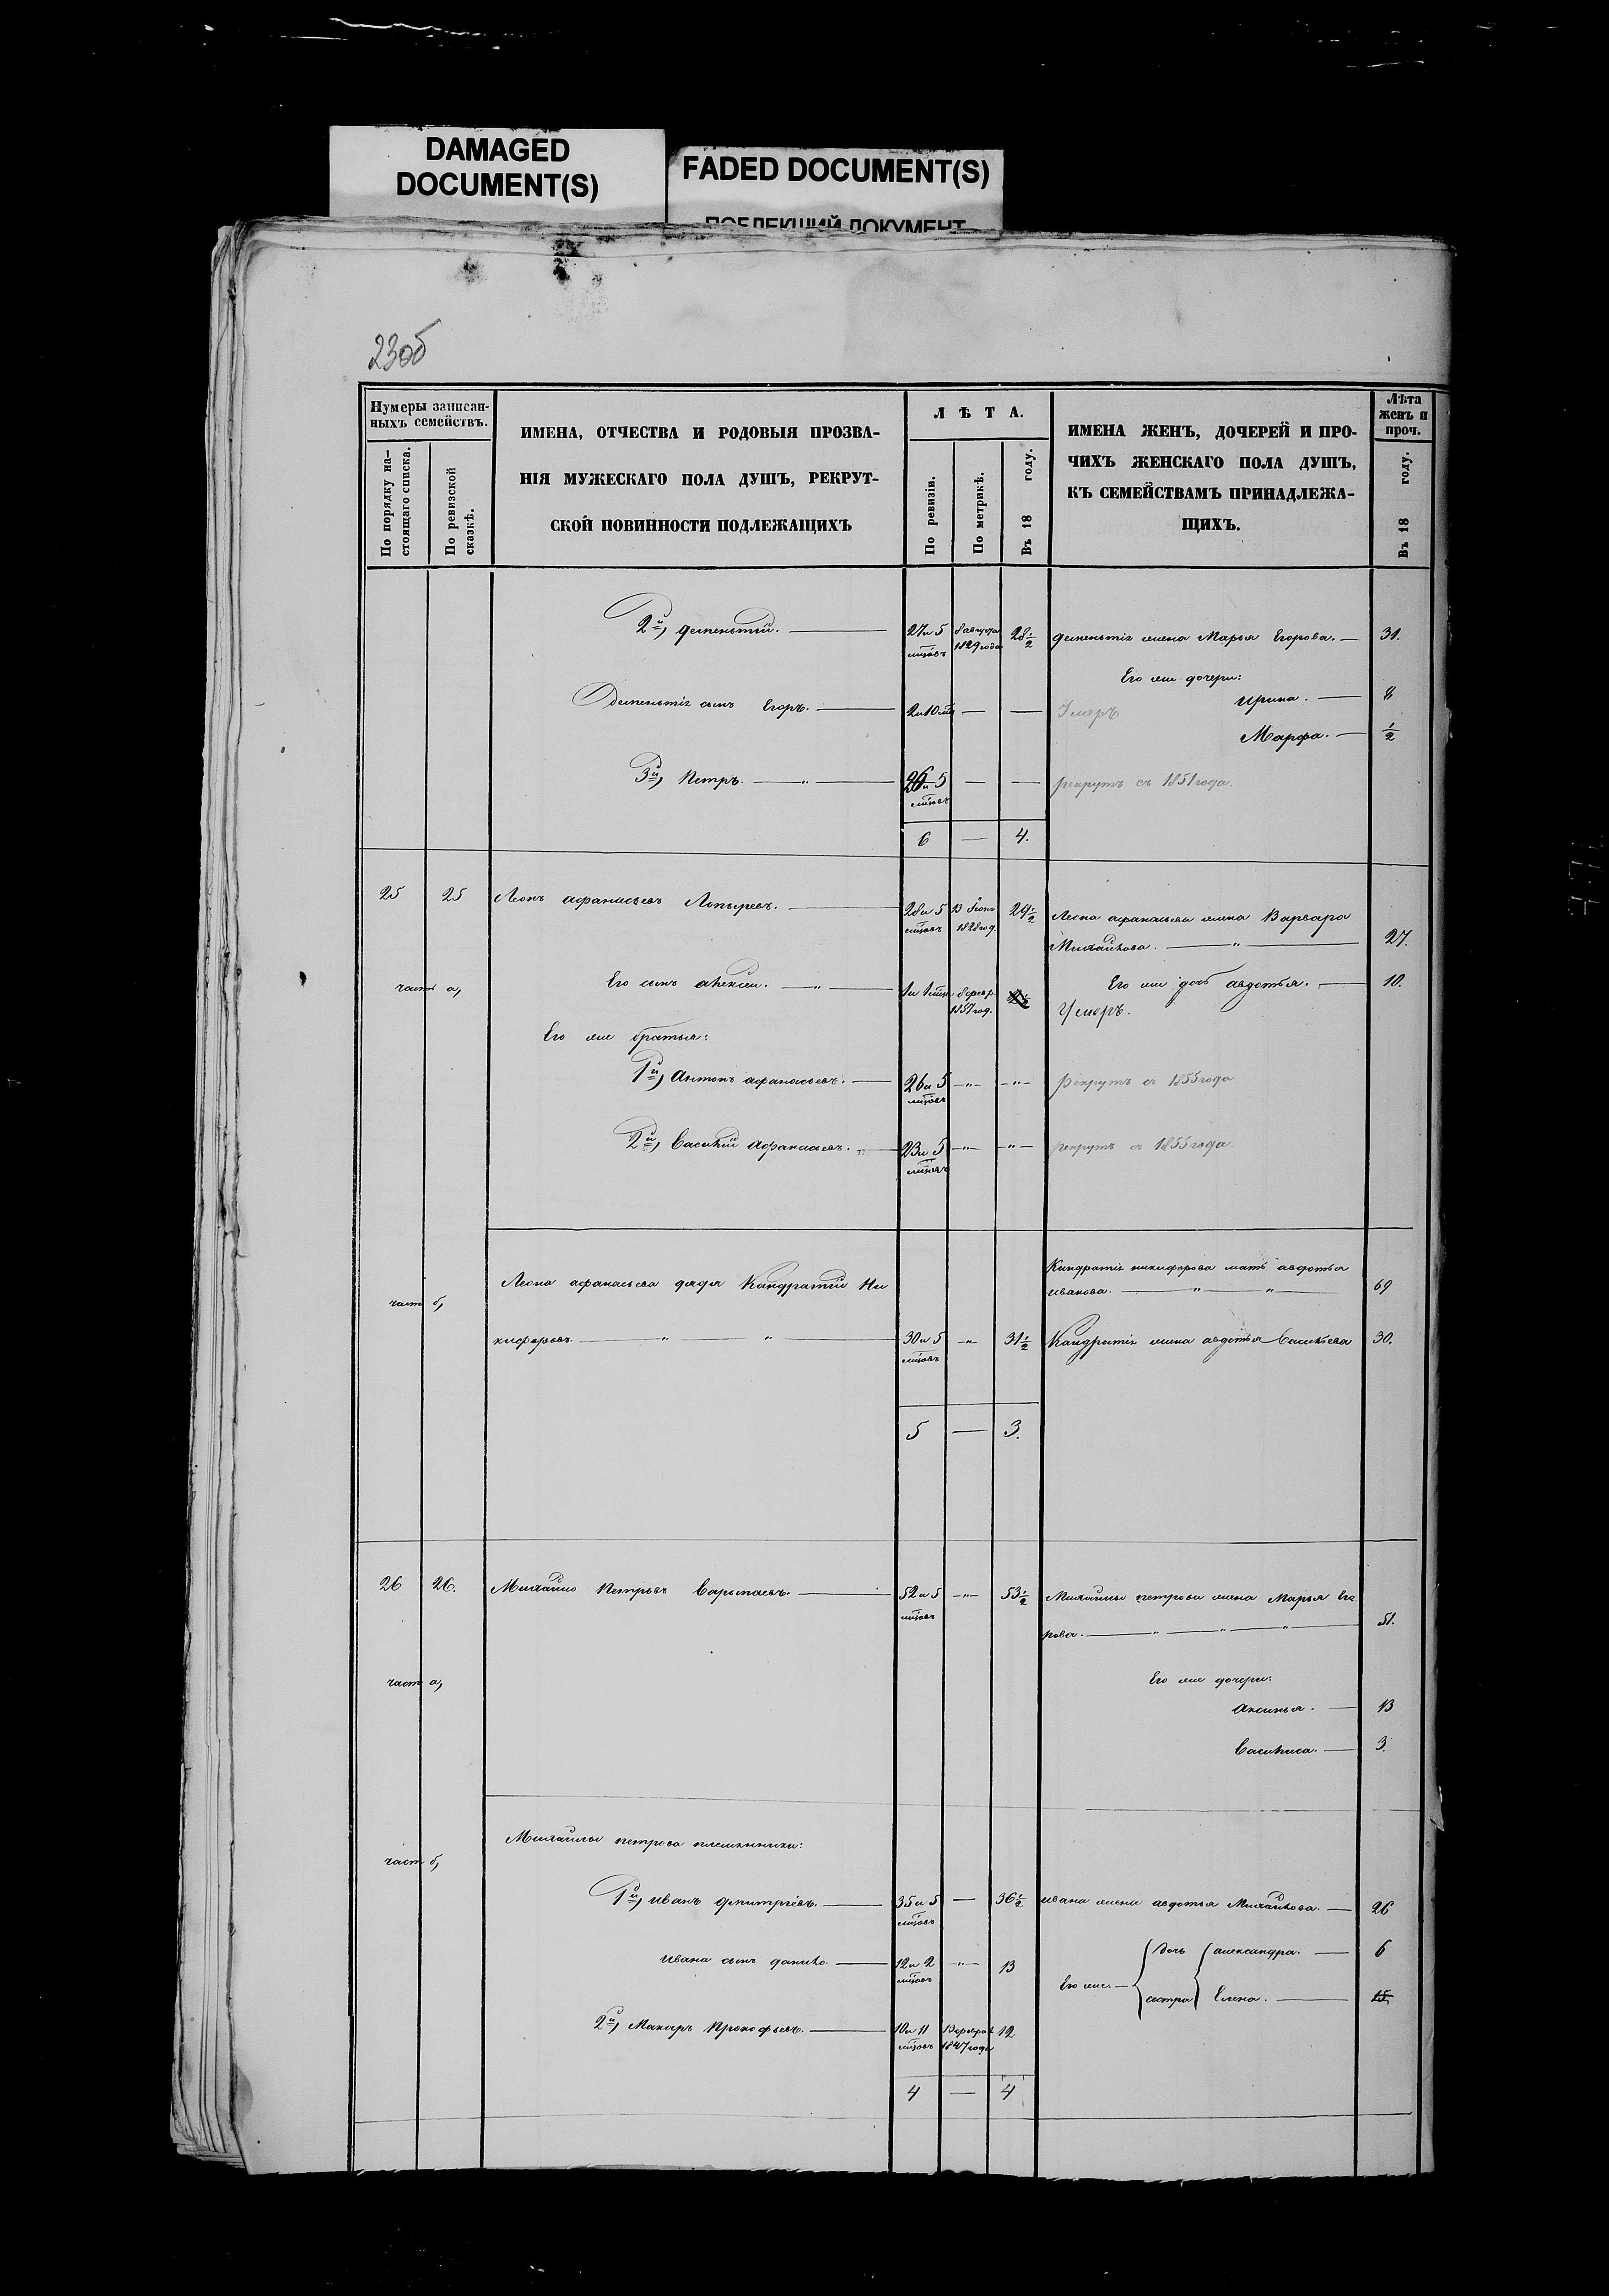 DAMAGED
DOCUMENT(S)
FADED DOCUMENT(S)
ПОБЛЕКШИЙ ДОКУМЕНТ
23об
Нумеры записан-
ныхъ семействъ.
По порядку на-
стоящаго списка.
По ревизской
сказкѣ.
ИМЕНА, ОТЧЕСТВА И РОДОВЫЯ ПРОЗВА-
НІЯ МУЖЕСКАГО ПОЛА ДУШЪ, РЕКРУТ-
СКОЙ ПОВИННОСТИ ПОДЛЕЖАЩИХЪ
ЛѢТА.
По ревизіи.
По метрикѣ.
Въ 18 году.
ИМЕНА ЖЕНЪ, ДОЧЕРЕЙ И ПРО-
ЧИХЪ ЖЕНСКАГО ПОЛА ДУШЪ,
КЪ СЕМЕЙСТВАМЪ ПРИНАДЛЕЖА-
ЩИХЪ.
Лѣта
женъ и
проч.
Въ 18 году.
2й, Дементій. — 27 и 5 мцовъ 8 августа 1829 года 28½ Дементія жена Марья Егорова. — 31.
Его же дочери:
Ирина. — 8
Дементія сынъ Егоръ. — 2 и 10 мц — — Умеръ
Марфа. — ½
3й, Петръ. — " — 26 и 5 мцовъ — — рекрутъ съ 1851 года.
6 — 4.
25 25 Леонъ Афанасьевъ Лопыревъ. — 28 и 5 мцовъ 13 Іюня 1828 год. 29½ Леона Афанасьева жена Варвара
Михайлова. — " — 27.
часть а, Его сынъ Алексѣй. — " — 1 и 1 мцъ 1857 год. Его же дочь Авдотья. — 10.
Умеръ.
Его же братья:
1й, Антонъ Афанасьевъ. — 26 и 5 мцовъ — " — — " — рекрутъ съ 1855 года
2й, Василій Афанасьевъ. — 23 и 5 мцовъ — " — — " — рекрутъ съ 1855 года
Кандратія Никифорова мать Авдотья
часть б, Леона Афанасьева дядя Кандратій Ни
Иванова. — " — " — 69
кифоровъ. — " — " — 30 и 5 мцовъ — " — 31½ Кандратія жена Авдотья Васильева 30.
5 — 3.
26 26. Михайло Петровъ Варыпаевъ. — 52 и 5 мцовъ — " — 53½ Михайлы Петрова жена Марья Его
рова. — " — " — " — 51.
часть а, Его же дочери:
Аксинья. — 13
Василиса. — 3.
Михайлы Петрова племянники:
часть б,
1й, Иванъ Дмитріевъ. — 35 и 5 мцовъ — 36½ Ивана жена Авдотья Михайлова. — 26
Ивана сынъ Данило. — 12 и 2 мцовъ — " — 13 Его же — дочь Александра. — 6
сестра Елена. — 15
2й, Макаръ Прокофьевъ. — 10 и 11 мцовъ 1847 года 12
4 — 4